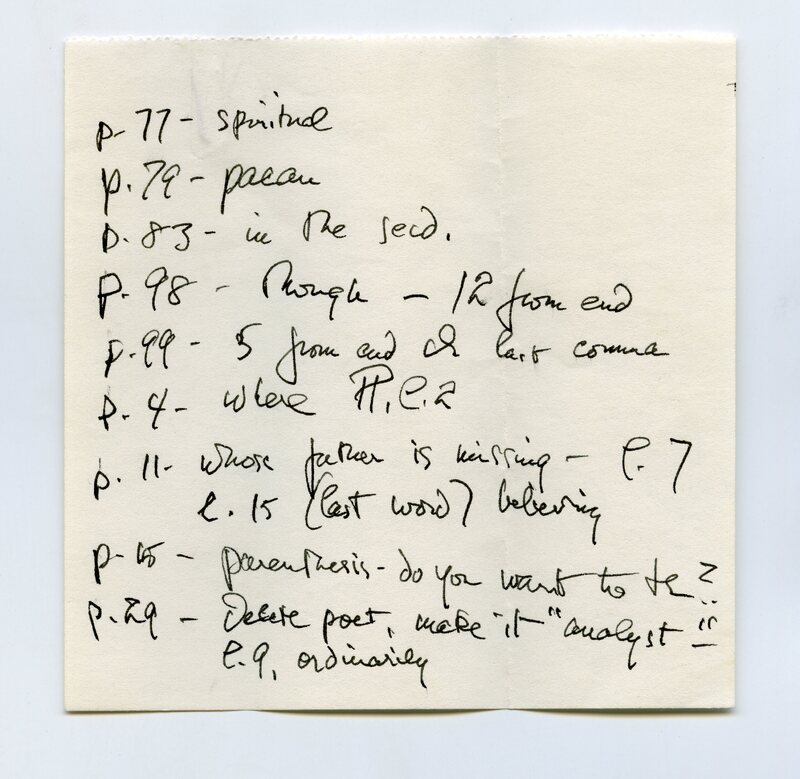 p. 77 - spiritual
p. 79 - paean
p. 83 - in the secd.
p. 98 - though - 12 from end
p. 99 - 5 from end last comma
p. 4 - where l. 2
p. 11 - whose father is missing - l. 7
l. 15 (last word) believing
p. 15 - parenthesis - do you want to ?
p. 29 - Delete poet, make it "analyst"
l. 9, ordinarily